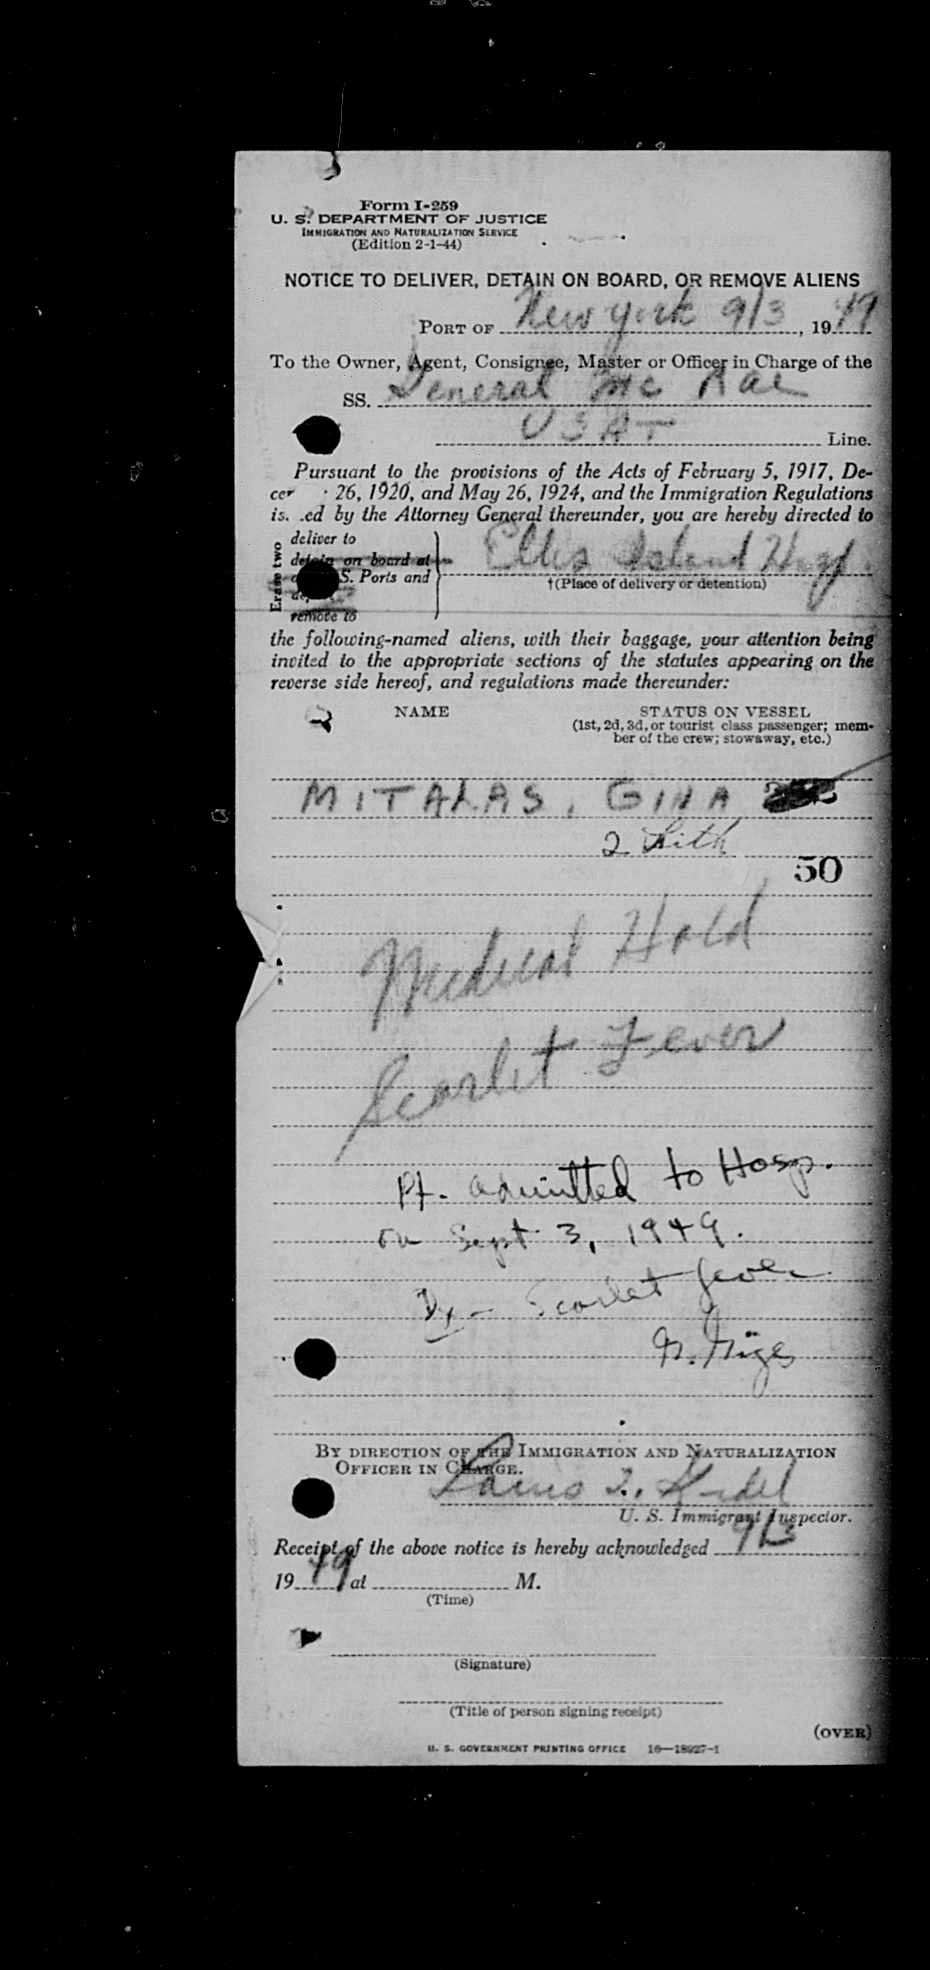 Form I-259
U. S. DEPARTMENT OF JUSTICE
IMMIGRATION AND NATURALIZATION SERVICE
(Edition 2-1-44)
NOTICE TO DELIVER, DETAIN ON BOARD, OR REMOVE ALIENS
PORT OF New York 9/3, 1949
To the Owner, Agent, Consignee, Master or Officer in Charge of the
SS. General Mc Rae
USAT Line.
Pursuant to the provisions of the Acts of February 5, 1917, De-
cer 26, 1920, and May 26, 1924, and the Immigration Regulations
is. .ed by the Attorney General thereunder, you are hereby directed to
Erase two
deliver to
detain on board at
S. Ports and
remove to
Ellis Island Hosp.
†(Place of delivery or detention)
the following-named aliens, with their baggage, your attention being
invited to the appropriate sections of the statutes appearing on the
reverse side hereof, and regulations made thereunder:
NAME STATUS ON VESSEL
(1st, 2d, 3d, or tourist class passenger; mem-
ber of the crew; stowaway, etc.)
MITALAS, GINA
2 Lith
50
Medical Hold
Scarlet Fever
Pt. admitted to Hosp.
on Sept 3, 1949.
Dx - Scarlet fever
BY DIRECTION OF THE IMMIGRATION AND NATURALIZATION
OFFICER IN CHARGE.
U. S. Immigrant Inspector.
Receipt of the above notice is hereby acknowledged 9/3
1949 at M.
(Time)
(Signature)
(Title of person signing receipt)
(OVER)
U. S. GOVERNMENT PRINTING OFFICE 16—18927-1